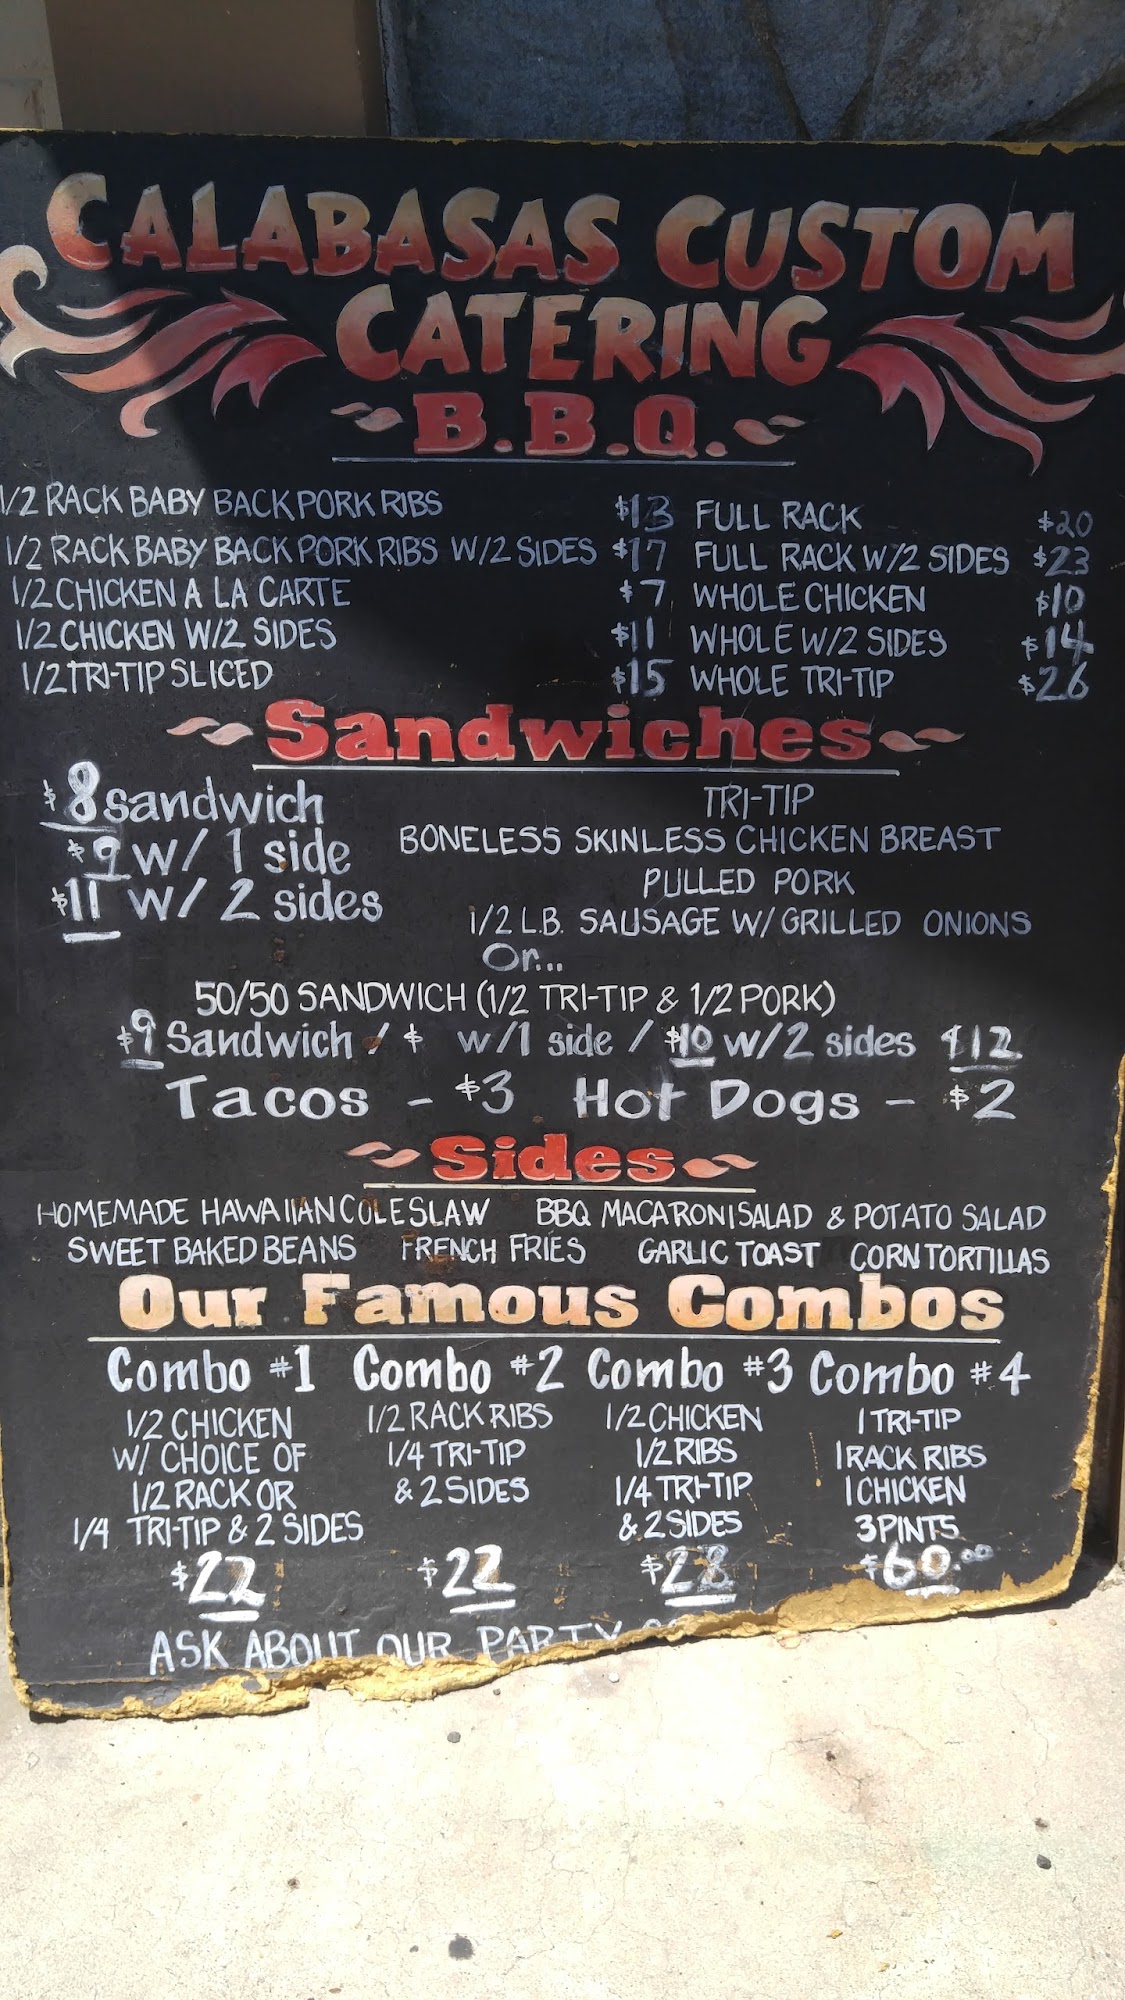 CALABASAS CUSTOM
CATERING
B.B.Q.
1/2 RACK BABY BACK PORK RIBS $13 FULL RACK $20
1/2 RACK BABY BACK PORK RIBS W/2 SIDES $17 FULL RACK W/2 SIDES $23
1/2 CHICKEN A LA CARTE $7 WHOLE CHICKEN $10
1/2 CHICKEN W/2 SIDES $11 WHOLE W/2 SIDES $14
1/2 TRI-TIP SLICED $15 WHOLE TRI-TIP $26
Sandwiches
$8 sandwich TRI-TIP
$9 w/ 1 side BONELESS SKINLESS CHICKEN BREAST
$11 w/ 2 sides PULLED PORK
1/2 L.B. SAUSAGE W/ GRILLED ONIONS
Or...
50/50 SANDWICH (1/2 TRI-TIP & 1/2 PORK)
$9 Sandwich / $ w/1 side / $10 w/2 sides $12
Tacos - $3 Hot Dogs - $2
Sides
HOMEMADE HAWAIIAN COLESLAW BBQ MACARONI SALAD & POTATO SALAD
SWEET BAKED BEANS FRENCH FRIES GARLIC TOAST CORN TORTILLAS
Our Famous Combos
Combo #1 Combo #2 Combo #3 Combo #4
1/2 CHICKEN 1/2 RACK RIBS 1/2 CHICKEN 1 TRI-TIP
W/ CHOICE OF 1/4 TRI-TIP 1/2 RIBS 1 RACK RIBS
1/2 RACK OR & 2 SIDES 1/4 TRI-TIP 1 CHICKEN
1/4 TRI-TIP & 2 SIDES & 2 SIDES 3 PINTS
$22 $22 $28 $60.00
ASK ABOUT OUR PARTY